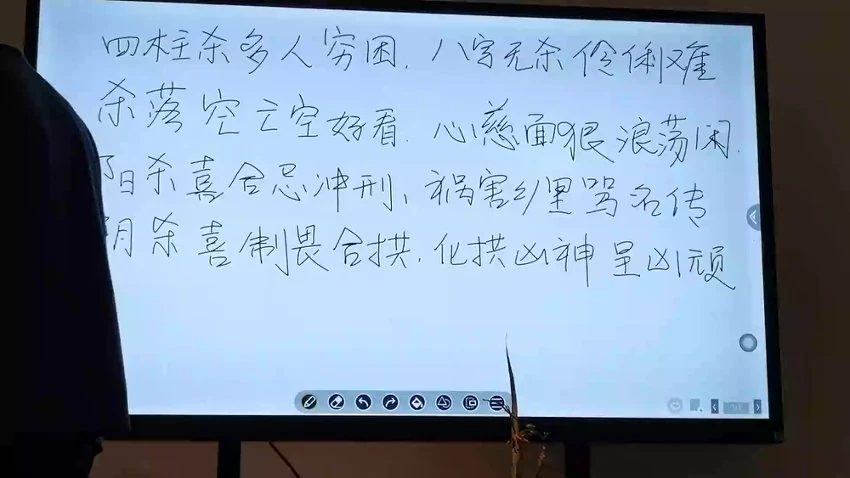 四柱杀多人穷困.八字无杀伶俐难
杀落空亡空好看.心慈面狠浪荡闲.
阳杀喜合忌冲刑、祸害乡里骂名传
阴杀喜制畏合拱.化拱凶神呈凶顽